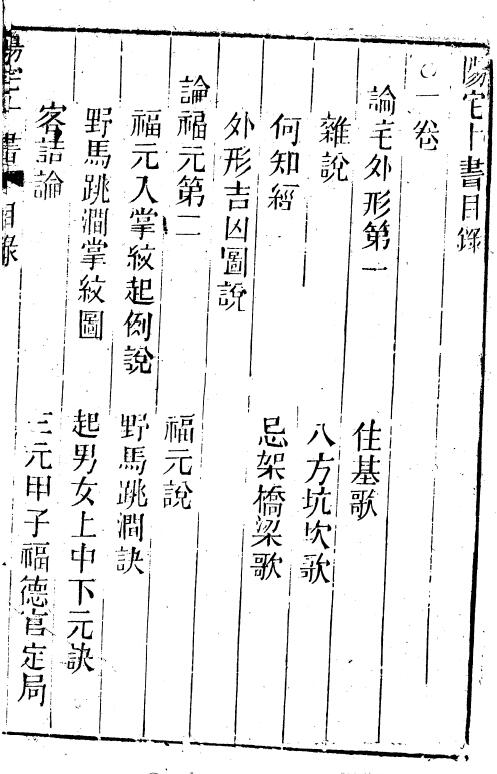 陽宅十書目錄
○一卷
論宅外形第一
住基歌
雜說
八方坑坎歌
何知經
忌架橋梁歌
外形吉凶圖說
論福元第二
福元說
福元入掌紋起例說
野馬跳澗訣
野馬跳澗掌紋圖
起男女上中下元訣
客詰論
三元甲子福德宮定局
陽宅十書 目錄